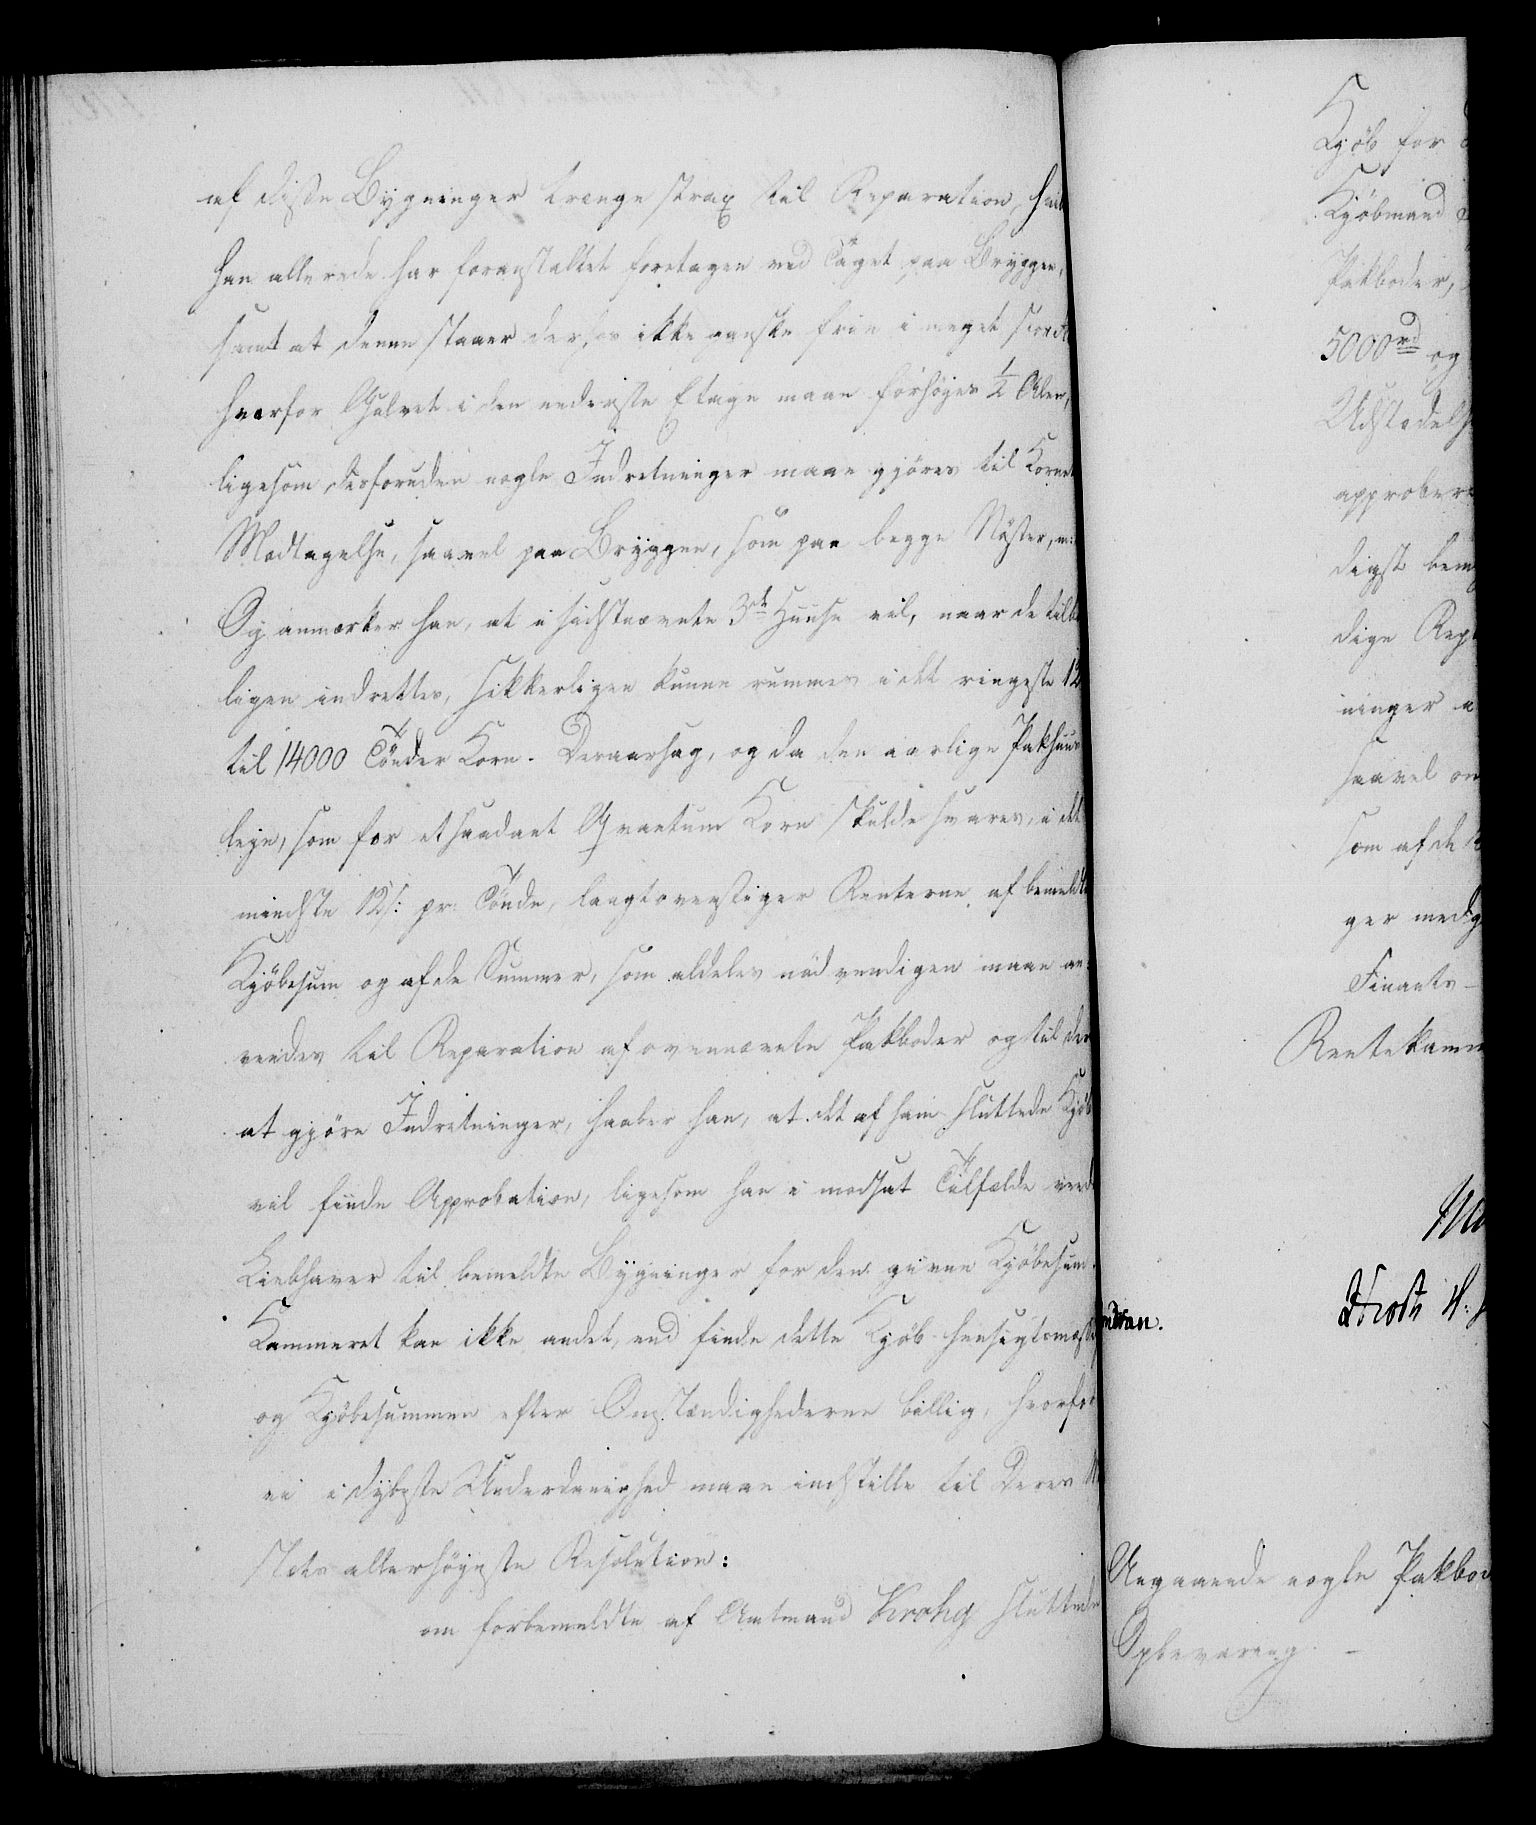 af disse Bygninger trænge strax til Reparation, hvilk
han allerede har foranstaltet foretagen ved Taget paa Bryggen,
samt at denne staaer derhos ikke ganske frie i meget
hvorfor Gulvet i den nederste Etage maae forhöges ½ Alen,
ligesom desforuden nogle Indretninger maae gjöres til Kornets
Modtagelse, saavel paa Bryggen, som paa begge Nöster, m:
Og anmærker han, at i sidstnævnte 3de Huuse vil, naar de tilbör
ligen indrettes, sikkerligen kunne rummes i det ringeste 12
til 14000 Tönder Korn. Deraarsag, og da den aarlige Pakhuus
leje, som for et saadant Qvantum Korn skulde svares, i det
mindste 12 s: pr: Tönde, langt overstiger Renterne af bemeldte
Kjöbesum og af de Summer, som aldeles nödvendigen maae an-
vendes til Reparation af ovennævnte Pakboder og til der
at gjöre Indretninger, haaber han, at det af ham sluttede Kjöb
vil finde Approbation, ligesom han i modsat Tilfælde veed
Liebhaver til bemeldte Bygninger for den givne Kjöbesum.
Kammeret kan ikke andet, end finde dette Kjöb hensigtsmæssig
og Kjöbesummen efter Omstændighederne billig, hvorfor
vi i dybeste Underdanighed maae indstille til Deres M
stets allerhöjeste Resolution:
om forbemeldte af Amtmand Krohg sluttede
Kjöb for
Kjöbmand
Pakboder,
5000 rd og
Udstedels
approbere
digst bem
dige Rep
ninger a
saavel om
som af de
ger medg
Finants-
Rentekamm
Angaaende nogle Pakbod
Opbevaring. -